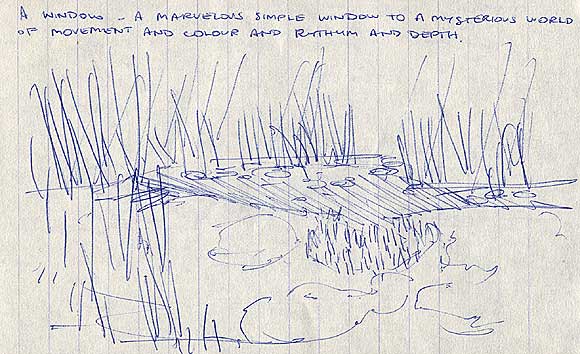 A WINDOW - A MARVELOUS SIMPLE WINDOW TO A MYSTERIOUS WORLD
OF MOVEMENT AND COLOUR AND RYTHUM AND DEPTH.